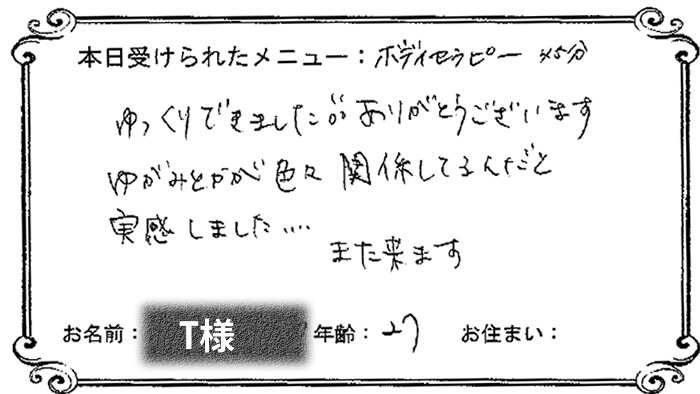 本日受けられたメニュー：ボディセラピー 45分
ゆっくりできました。。ありがとうございます
ゆがみとかが色々関係してるんだと
実感しました....
また来ます
お名前： T様 年齢：27 お住まい：